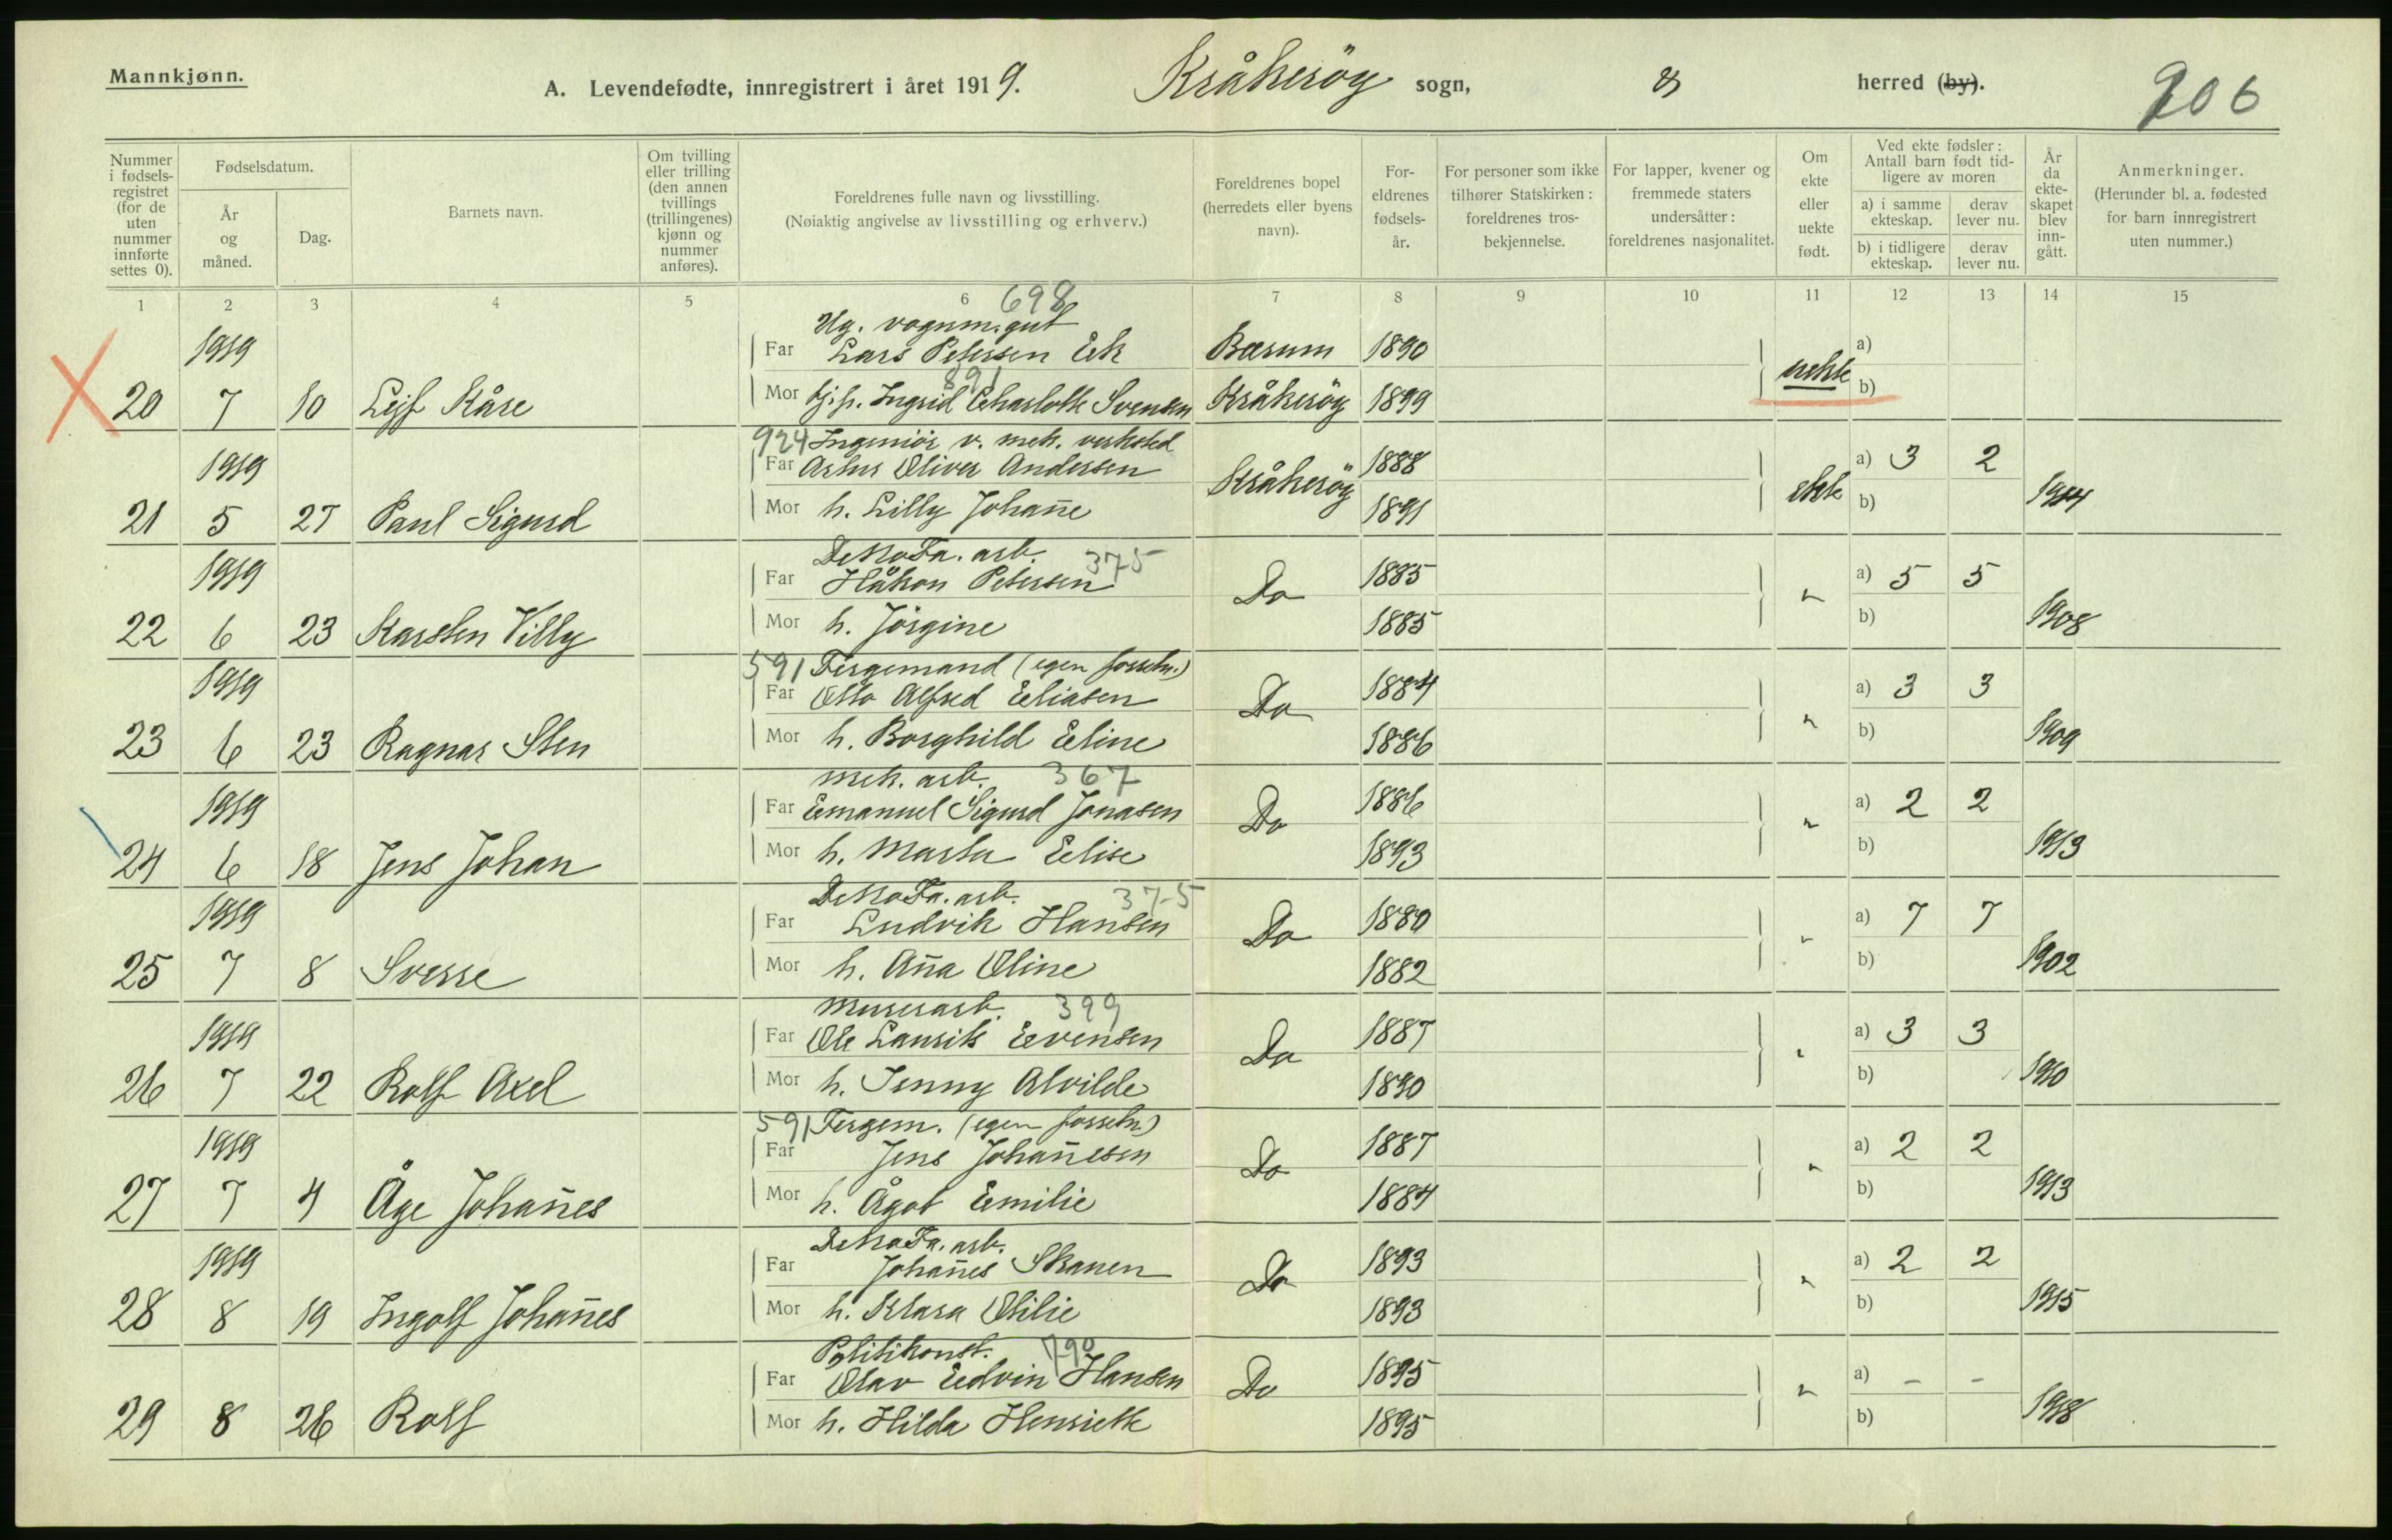 Mannkjønn.
A. Levendefødte, innregistrert i året 1919. Kråkerøy sogn, herred (by). 206
Nummer i fødsels-registret (for de uten nummer innførte settes 0).
Fødselsdatum.
År og måned.
Dag.
Barnets navn.
Om tvilling eller trilling (den annen tvillings (trillingenes) kjønn og nummer anføres).
Foreldrenes fulle navn og livsstilling.
(Nøiaktig angivelse av livsstilling og erhverv.)
Foreldrenes bopel (herredets eller byens navn).
For-eldrenes fødsels-år.
For personer som ikke tilhører Statskirken: foreldrenes tros-bekjennelse.
For lapper, kvener og fremmede staters undersåtter: foreldrenes nasjonalitet.
Om ekte eller uekte født.
Ved ekte fødsler: Antall barn født tid-ligere av moren
a) i samme ekteskap. derav lever nu.
b) i tidligere ekteskap. derav lever nu.
År da ekte-skapet blev inn-gått.
Anmerkninger.
(Herunder bl. a. fødested for barn innregistrert uten nummer.)
1 2 3 4 5 6 7 8 9 10 11 12 13 14 15
698
Ug. vognm.gut
1919 Far Lars Petersen Eek Bærum 1890 a)
891
20 7 10 Lejf Kåre Mor Ingrid Charlotte Svensen Kråkerøy 1899 uekte b)
924 Ingeniør v. mek. verksted
1919 Far Artur Oliver Andersen Kråkerøy 1888 ekte a) 3 2
21 5 27 Paul Sigurd Mor h. Lilly Johan̄e 1891 b) 1914
DeNoFa. arb. 375
1919 Far Håkon Petersen Do 1885 " a) 5 5
22 6 23 Karsten Villy Mor h. Jörgine 1885 b) 1908
591 Fergemand (egen forretn.)
1919 Far Otto Alfred Eliasen Do 1884 " a) 3 3
23 6 23 Ragnar Sten Mor h. Borghild Eline 1886 b) 1909
mek. arb. 367
1919 Far Emanuel Sigurd Jonasen Do 1886 " a) 2 2
24 6 18 Jens Johan Mor h. Marta Elise 1893 b) 1913
DeNoFa. arb. 375
1919 Far Ludvik Hansen Do 1880 " a) 7 7
25 7 8 Sverre Mor h. An̄a Oline 1882 b) 1902
Murerarb. 399
1919 Far Ole Laurits Evensen Do 1887 " a) 3 3
26 7 22 Rolf Axel Mor h. Jenny Alvilde 1890 b) 1910
591 Fergem. (egen forretn.)
1919 Far Jens Johan̄esen Do 1887 " a) 2 2
27 7 4 Åge Johan̄es Mor h. Ågot Emilie 1884 b) 1913
DeNoFa. arb.
1919 Far Johan̄es Skauen Do 1893 " a) 2 2
28 8 19 Ingolf Johan̄es Mor h. Klara Otilie 1893 b) 1915
Politikonst. 790
Far Olav Edvin Hansen Do 1895 " a) - -
29 8 26 Rolf Mor h. Hilda Henriette 1895 b) 1918